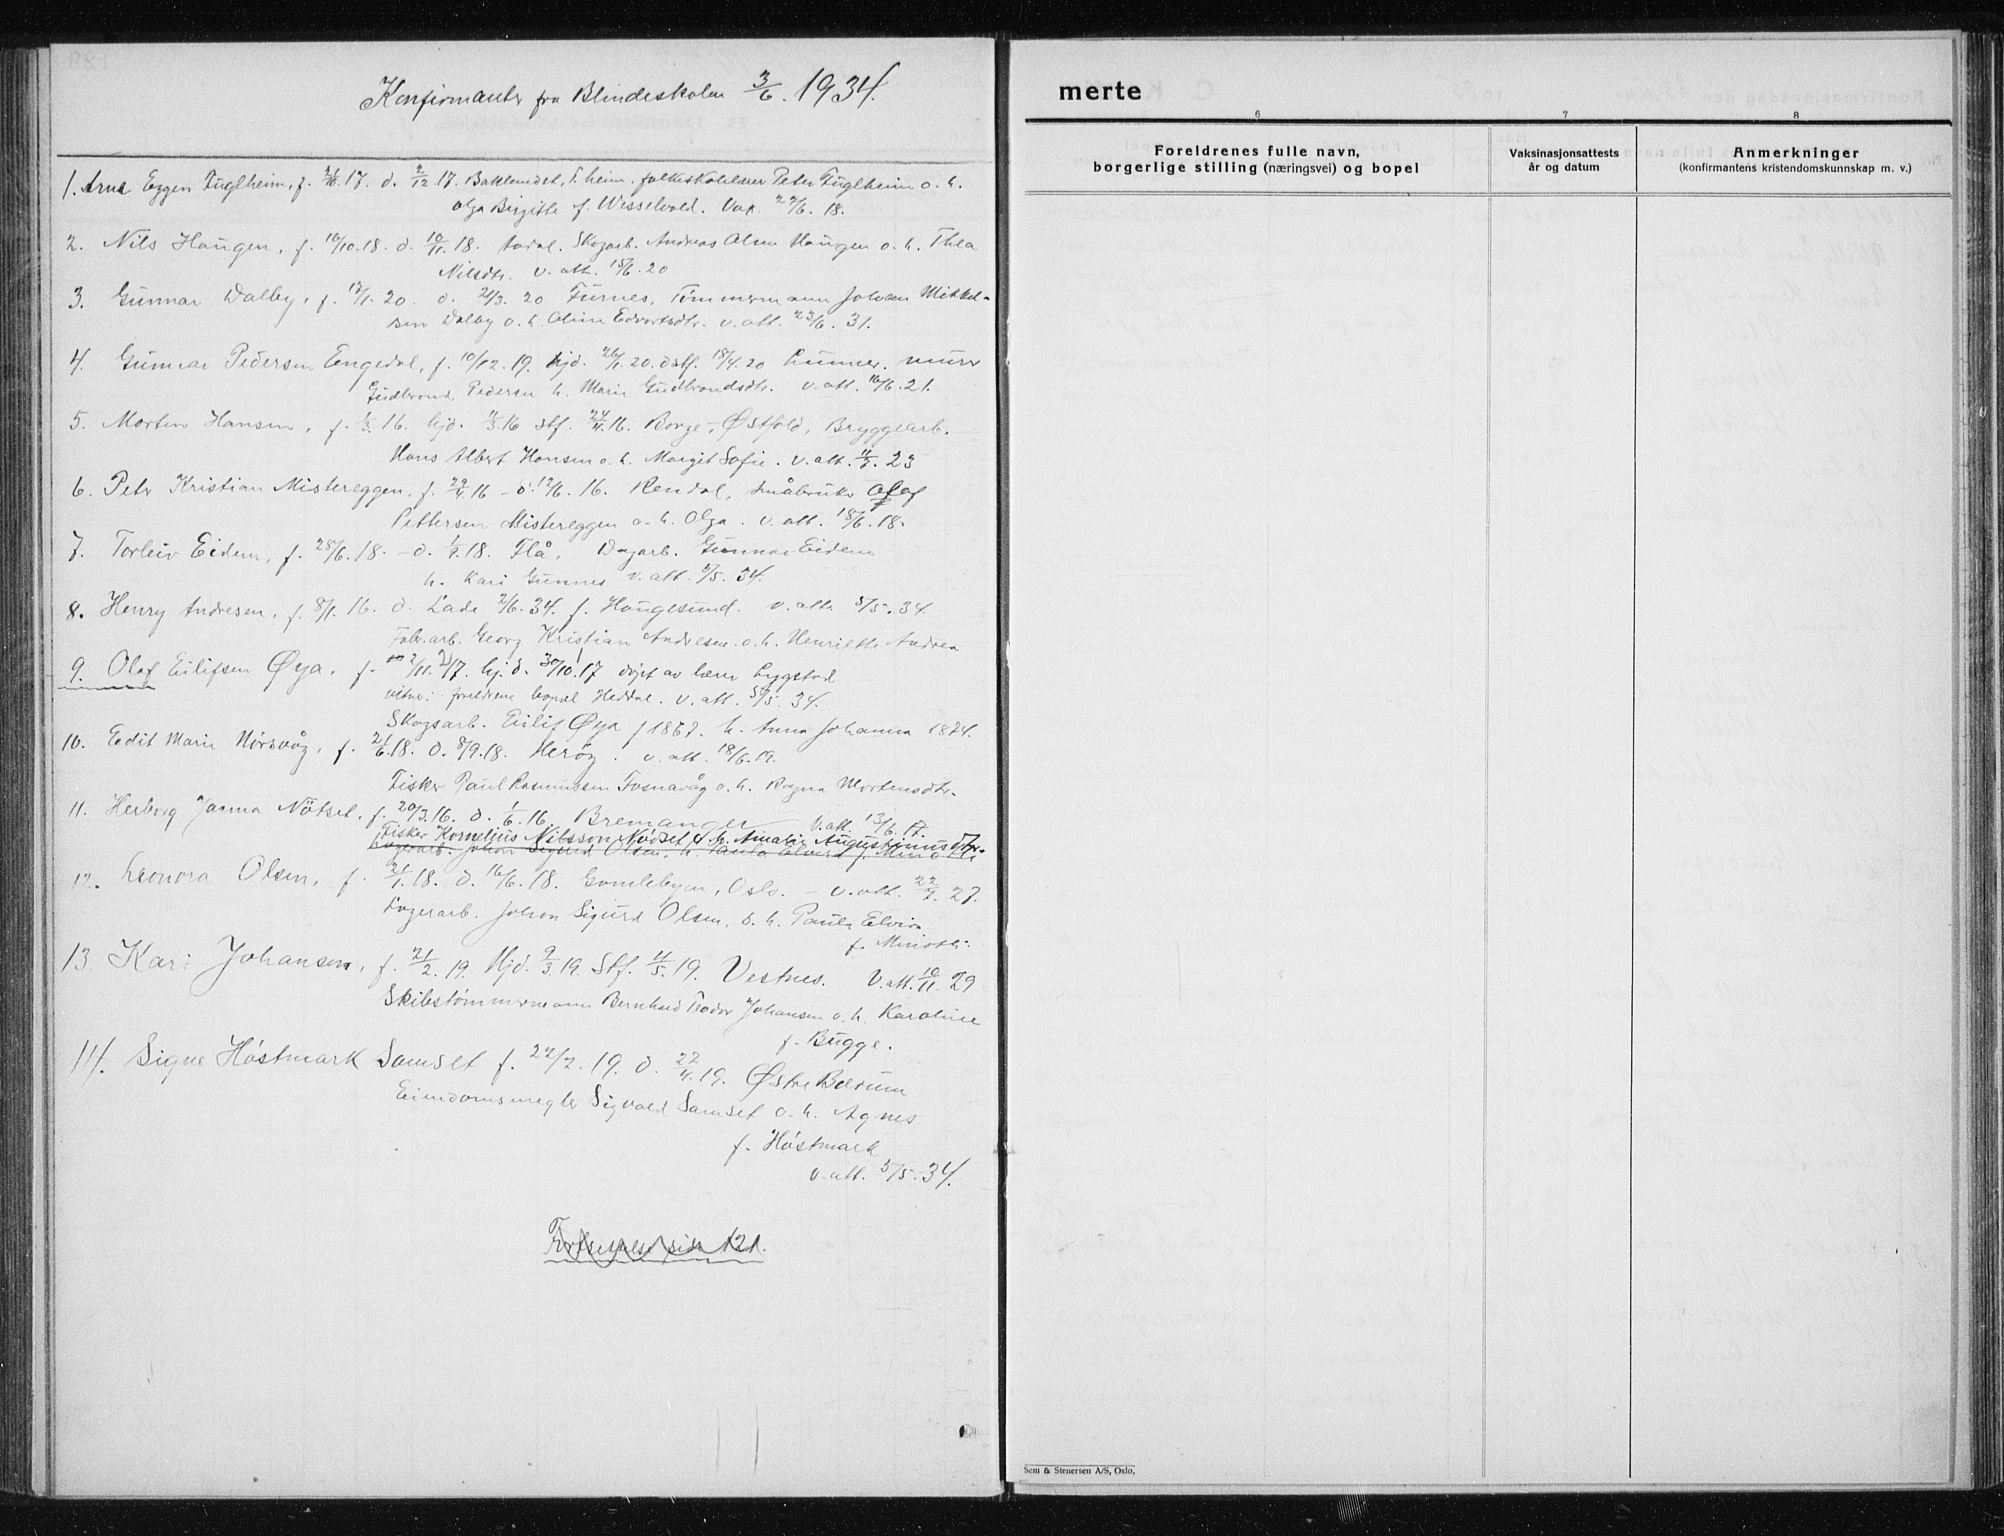 Konfirmanter fra Blindeskolen 3/6. 1934.
1. Arne Eggen Fuglheim, f. 17. d. 2/12. 17. Baklandet, T.heim. folkeskolelærer Peter Fuglheim o. h.
Olga Birgitte f. Wesselvold. Vax. 22/6. 18.
2. Nils Haugen, f. 16/10. 18. d. 10/11. 18. Skogarb. Andreas Olsen Haugen o. h. Thea
Nilsdtr. v. att. 15/6. 20
3. Gunnar Dalby, f. 17/1. 20. d. 21/3. 20 Furnes, Tømmermann Johan Mikkel-
sen Dalby o. h. Oline Edvartsdtr. v. att. 23/6. 31.
4. Gunnar Pedersen Engedal, f. 10/12. 19. hjd. 20. dstf. 18/4. 20 Lunner. murer
Gudbrand Pedersen h. Marie Gudbrandsdtr. v. att. 16/6. 21.
5. Morten Hansen, f. 1/3. 16. hjd. 16 stf. 24/4. 16. Borge, Østfold, Bryggearb.
Hans Albert Hansen o. h. Margit Sofie. v. att. 23
6. Peter Kristian Mistereggen, f. 16 - d. 12/6. 16. Rendal, småbruker Olaf
Pettersen Mistereggen o. h. Olga. v. att. 18/6. 18.
7. Torleiv Eidem, f. 25/6. 18. - d. 18. Flå, Dagarb. Gunnar Eidem
h. Kari Gunnes v. att. 5/5. 34.
8. Henry Andresen, f. 8/1. 16. d. Lade 2/6. 34. f. Haugesund. v. att. 5/5. 34
Fabr.arb. Georg Kristian Andresen o. h. Henriette Andrea
9. Olaf Eilifsen Øya, f. 17. hjd. 30/10. 17 døpt av lærer Lygstad
vitner: foreldrene bopæl Heddal. v. att. 5/5. 34.
Skogsarb. Eilif Øya f 1867. h. Anna Johanna 1874.
10. Edit Marie Nørvåg, f. 18. d. 8/9. 18. Herøy. v. att. 18/6. 19.
Fisker Paul Rasmussen Fosnavåg o. h. Ragna Mortensdtr.
11. Herborg Janna Nötset, f. 20/3. 16. d. 1/6. 16. Bremanger v. att. 13/6. 17.
Fisker Kornelius Nilsson Nödset o. h. Amalie Augustinusdtr.
Lagerarb. Johan Sigurd Olsen, h. Paula Elvira f.
12. Leonora Olsen, f. 21/1. 18. d. 16/6. 18. Gamlebyen, Oslo. - v. att. 27.
Lagerarb. Johan Sigurd Olsen, o. h. Paula Elvira
f.
13. Kari Johansen, f. 21/2. 19. Hjd. 9/3. 19. Stf. 19. Vestnes. V. att. 10/11. 29
Skibstømmermann Bernhard Teodor Johansen o. h. Karoline
f. Bugge.
14. Signe Höstmark Samset f. 22/2. 19. d. 22/4. 19. Østre Bærum
Eiendomsmegler Sigvald Samset o. h. Agnes
f. Höstmark
v. att. 5/5. 34.
Fortsettelse side 121.
merte
6 7 8
Foreldrenes fulle navn,
borgerlige stilling (næringsvei) og bopel
Vaksinasjonsattests
år og datum
Anmerkninger
(konfirmantens kristendomskunnskap m. v.)
Sem & Stenersen A/S, Oslo.